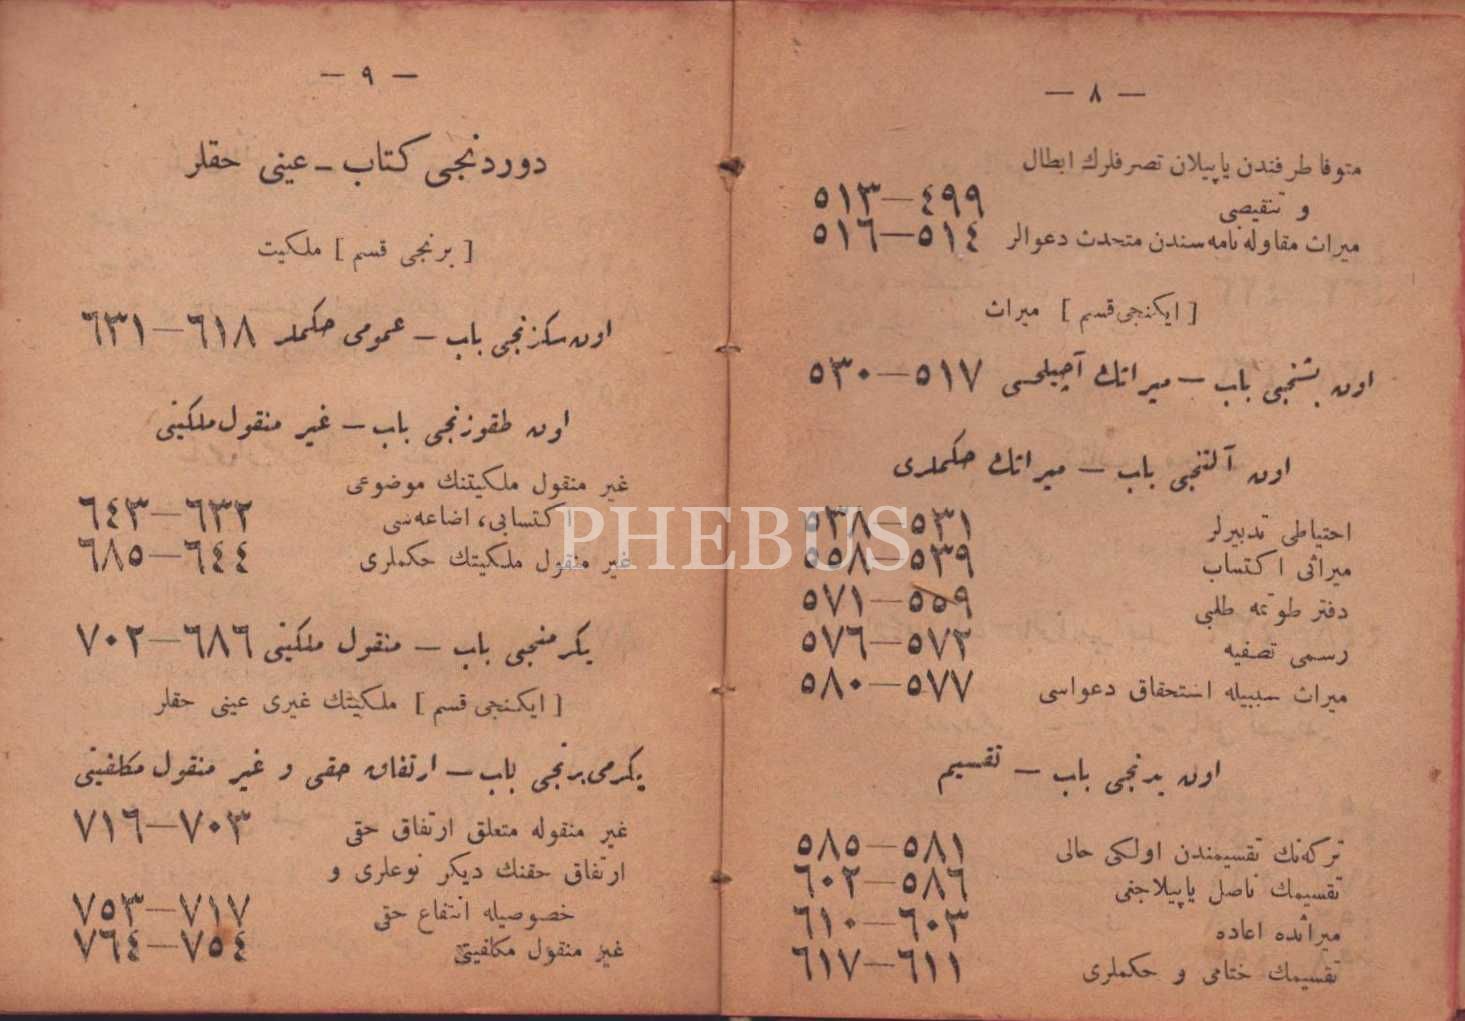 — ٨ —
متوفا طرفندن یاپیلان تصرفلرك ابطال
و تنقیصی ٤٩٩—٥١٣
میراث مقاوله‌نامه‌سندن متحدث دعوالر ٥١٤—٥١٦
[ ایكنجی قسم ] میراث
اون بشنجی باب — میراثك آچیلمسی ٥١٧—٥٣٠
اون آلتنجی باب — میراثك حكملری
احتیاطی تدبیرلر ٥٣١—٥٣٨
میراثی اكتساب ٥٣٩—٥٥٨
دفتر طوتمه طلبی ٥٥٩—٥٧١
رسمی تصفیه ٥٧٢—٥٧٦
میراث سببیله استحقاق دعواسی ٥٧٧—٥٨٠
اون یدنجی باب — تقسیم
تركه‌نك تقسیمندن اولكی حالی ٥٨١—٥٨٥
تقسیمك ناصل یاپیلاجغی ٥٨٦—٦٠٢
میراثده اعاده ٦٠٣—٦١٠
تقسیمك ختامی و حكملری ٦١١—٦١٧
— ٩ —
دوردنجی كتاب - عینی حقلر
[ برنجی قسم ] ملكیت
اون سكزنجی باب — عمومی حكملر ٦١٨—٦٣١
اون طقوزنجی باب — غیر منقول ملكیتی
غیر منقول ملكیتنك موضوعی
اكتسابی، اضاعه‌سی ٦٣٢—٦٤٣
غیر منقول ملكیتك حكملری ٦٤٤—٦٨٥
یكرمنجی باب — منقول ملكیتی ٦٨٦—٧٠٢
[ ایكنجی قسم ] ملكیتك غیری عینی حقلر
یكرمی برنجی باب — ارتفاق حقی و غیر منقول مكلفیتی
غیر منقوله متعلق ارتفاق حقی ٧٠٣—٧١٦
ارتفاق حقنك دیكر نوعلری و
خصوصیله انتفاع حقی ٧١٧—٧٥٣
غیر منقول مكلفیتی ٧٥٤—٧٦٤
PHEBUS